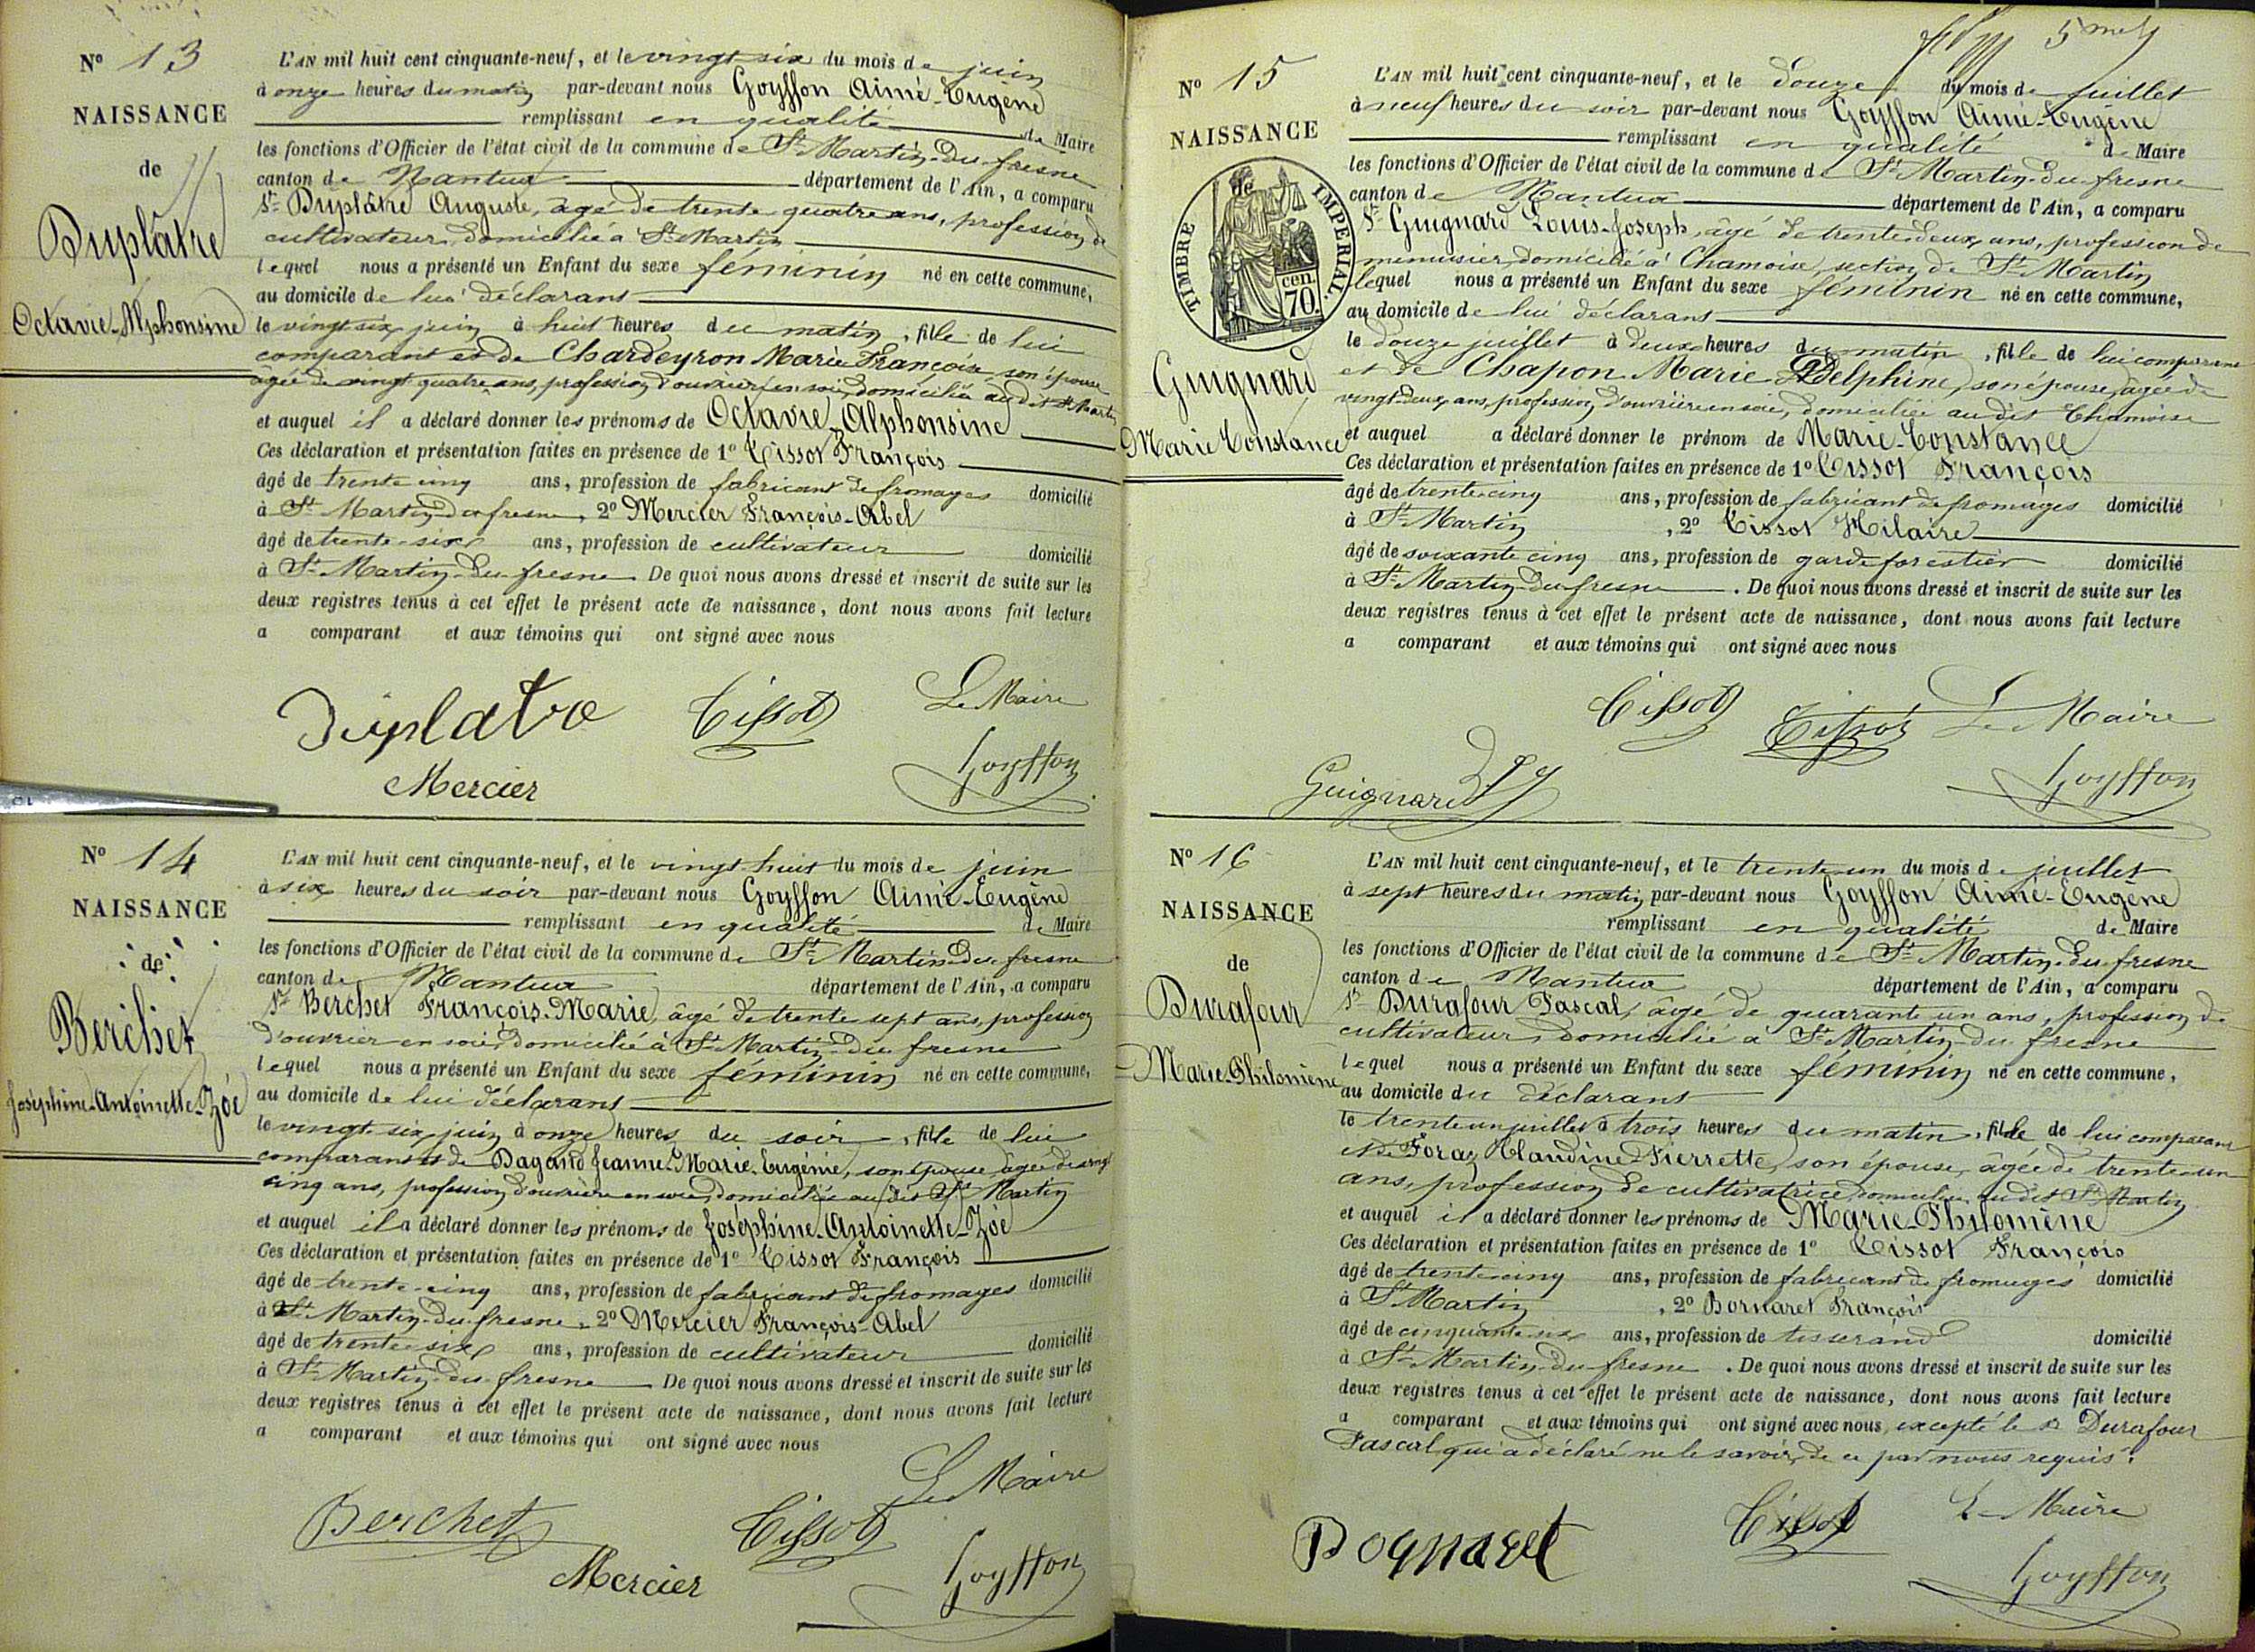 N° 13
NAISSANCE
de
Duplâtre
Octavie-Alphonsine
L'AN mil huit cent cinquante-neuf, et le vingt six du mois de juin
à onze heures du matin par-devant nous Goyffon Aimé-Eugène
remplissant en qualité de Maire
les fonctions d'Officier de l'état civil de la commune de St Martin-du-fresne
canton de Nantua département de l'Ain, a comparu
Sr Duplâtre Auguste, âgé de trente quatre ans, profession de
cultivateur, domicilié à St Martin
lequel nous a présenté un Enfant du sexe féminin né en cette commune,
au domicile de lui déclarant
le vingt six juin à huit heures du matin, fille de lui
comparant et de Chardeyron Marie Françoise son épouse
âgée de vingt quatre ans, profession d'ouvrière en soie, domiciliée au dit St Martin
et auquel il a déclaré donner les prénoms de Octavie-Alphonsine
Ces déclaration et présentation faites en présence de 1° Tissot François
âgé de trente cinq ans, profession de fabricant de fromages domicilié
à St Martin du fresne, 2° Mercier François-Abel
âgé de trente-six ans, profession de cultivateur domicilié
à St Martin-du-fresne De quoi nous avons dressé et inscrit de suite sur les
deux registres tenus à cet effet le présent acte de naissance, dont nous avons fait lecture
a comparant et aux témoins qui ont signé avec nous
Duplatre Tissot Le Maire
Mercier Goyffon
N° 14
NAISSANCE
de
Berchet
Joséphine-Antoinette-Zóé
L'AN mil huit cent cinquante-neuf, et le vingt-huit du mois de juin
à six heures du soir par-devant nous Goyffon Aimé-Eugène
remplissant en qualité de Maire
les fonctions d'Officier de l'état civil de la commune de St Martin-du-fresne
canton de Nantua département de l'Ain, a comparu
Sr Berchet François-Marie, âgé de trente sept ans, profession
d'ouvrier en soie, domicilié à St Martin-du-fresne
lequel nous a présenté un Enfant du sexe féminin né en cette commune,
au domicile de lui déclarant
le vingt-six juin à onze heures du soir, fille de lui
comparant et de Dagand Jeanne-Marie-Eugénie, son épouse, âgée de vingt
cinq ans, profession d'ouvrière en soie, domiciliée au dit St Martin
et auquel il a déclaré donner les prénoms de Joséphine-Antoinette-Zóé
Ces déclaration et présentation faites en présence de 1° Tissot François
âgé de trente-cinq ans, profession de fabricant de fromages domicilié
à St Martin-du-fresne, 2° Mercier François-Abel
âgé de trente-six ans, profession de cultivateur domicilié
à St Martin-du-fresne De quoi nous avons dressé et inscrit de suite sur les
deux registres tenus à cet effet le présent acte de naissance, dont nous avons fait lecture
a comparant et aux témoins qui ont signé avec nous
Berchet Tissot Le Maire
Mercier Goyffon
N° 15
NAISSANCE
de
TIMBRE IMPERIAL.
70 cen.
Guignard
Marie Constance
L'AN mil huit cent cinquante-neuf, et le douze du mois de juillet
à neuf heures du soir par-devant nous Goyffon Aimé-Eugène
remplissant en qualité de Maire
les fonctions d'Officier de l'état civil de la commune de St Martin-du-fresne
canton de Nantua département de l'Ain, a comparu
Sr Guignard Louis-Joseph, âgé de trente-deux ans, profession de
menuisier, domicilié à Chamoise, section de St Martin
lequel nous a présenté un Enfant du sexe féminin né en cette commune,
au domicile de lui déclarant
le douze juillet à deux heures du matin, fille de lui comparant
et de Chapon Marie Adelphine, son épouse, âgée de
vingt-deux ans, profession d'ouvrière en soie, domiciliée au dit Chamoise
et auquel a déclaré donner le prénom de Marie-Constance
Ces déclaration et présentation faites en présence de 1° Tissot François
âgé de trente-cinq ans, profession de fabricant de fromages domicilié
à St Martin, 2° Tissot Hilaire
âgé de soixante cinq ans, profession de garde forestier domicilié
à St Martin-du-fresne. De quoi nous avons dressé et inscrit de suite sur les
deux registres tenus à cet effet le présent acte de naissance, dont nous avons fait lecture
a comparant et aux témoins qui ont signé avec nous
Tissot Tissot Le Maire
Guignard Goyffon
N° 16
NAISSANCE
de
Durafour
Marie-Philomène
L'AN mil huit cent cinquante-neuf, et le trente-un du mois de juillet
à sept heures du matin par-devant nous Goyffon Aimé-Eugène
remplissant en qualité de Maire
les fonctions d'Officier de l'état civil de la commune de St Martin-du-fresne
canton de Nantua département de l'Ain, a comparu
Sr Durafour Pascal, âgé de quarante un ans, profession de
cultivateur, domicilié à St Martin du fresne
lequel nous a présenté un Enfant du sexe féminin né en cette commune,
au domicile du déclarant
le trente un juillet à trois heures du matin, fille de lui comparant
et de Foraz Claudine-Pierrette, son épouse, âgée de trente-un
ans, profession de cultivatrice, domiciliée au dit St Martin
et auquel il a déclaré donner les prénoms de Marie-Philomène
Ces déclaration et présentation faites en présence de 1° Tissot François
âgé de trente-cinq ans, profession de fabricant de fromages domicilié
à St Martin, 2° Bornaret François
âgé de cinquante-six ans, profession de tisserand domicilié
à St Martin-du-fresne. De quoi nous avons dressé et inscrit de suite sur les
deux registres tenus à cet effet le présent acte de naissance, dont nous avons fait lecture
a comparant et aux témoins qui ont signé avec nous, excepté le sr Durafour
Pascal, qui a déclaré ne le savoir, de ce par nous requis.
Tissot Le Maire
Goyffon